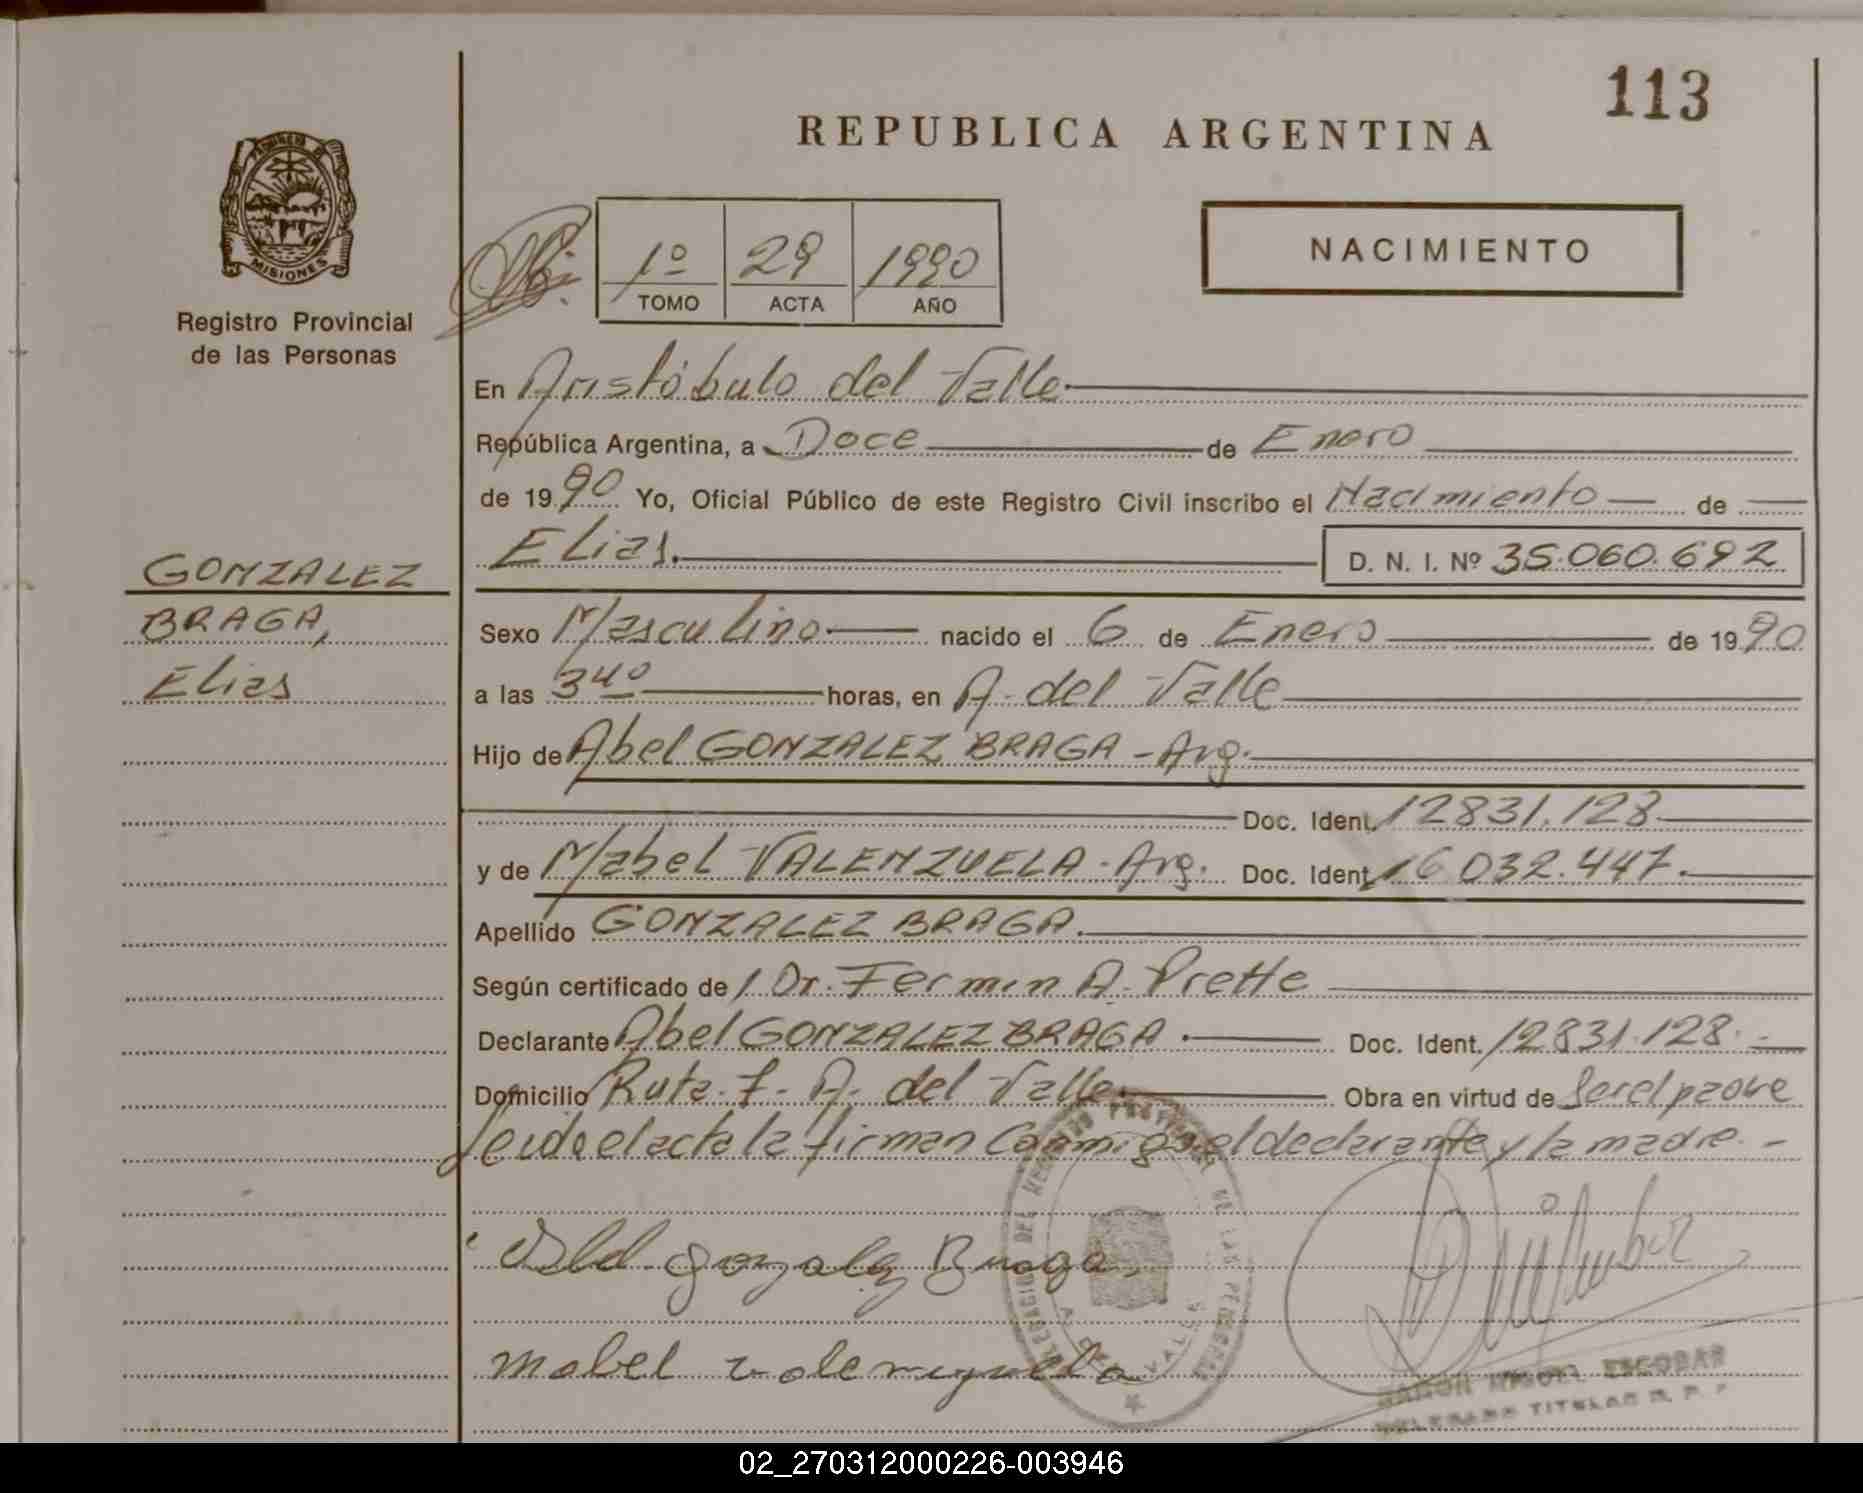 113
REPUBLICA ARGENTINA
PROVINCIA DE
MISIONES
Registro Provincial
de las Personas
1º 29 1990
TOMO ACTA AÑO
NACIMIENTO
En Aristóbulo del Valle.
República Argentina, a Doce de Enero
de 1990 Yo, Oficial Público de este Registro Civil inscribo el Nacimiento de
Elias. D. N. I. Nº 35.060.692
GONZALEZ
BRAGA,
Elias
Sexo Masculino nacido el 6 de Enero de 1990
a las 3 40 horas, en A. del Valle
Hijo de Abel GONZALEZ BRAGA - Arg.
Doc. Ident. 12831.128
y de Mabel VALENZUELA - Arg. Doc. Ident. 16032.447.
Apellido GONZALEZ BRAGA.
Según certificado de / Dr. Fermin A. Prette
Declarante Abel GONZALEZ BRAGA. Doc. Ident. 12831.128. -
Domicilio Ruta 7 - A. del Valle. Obra en virtud de Ser el padre
Leida el acta la firman conmigo el declarante y la madre. -
Abel Gonzalez Braga,
Mabel Valenzuela
DELEGACION DEL REGISTRO PROVINCIAL DE LAS PERSONAS
A. DEL VALLE
RAMON MIGUEL ESCOBAR
DELEGADO TITULAR R. P. P.
02_270312000226-003946